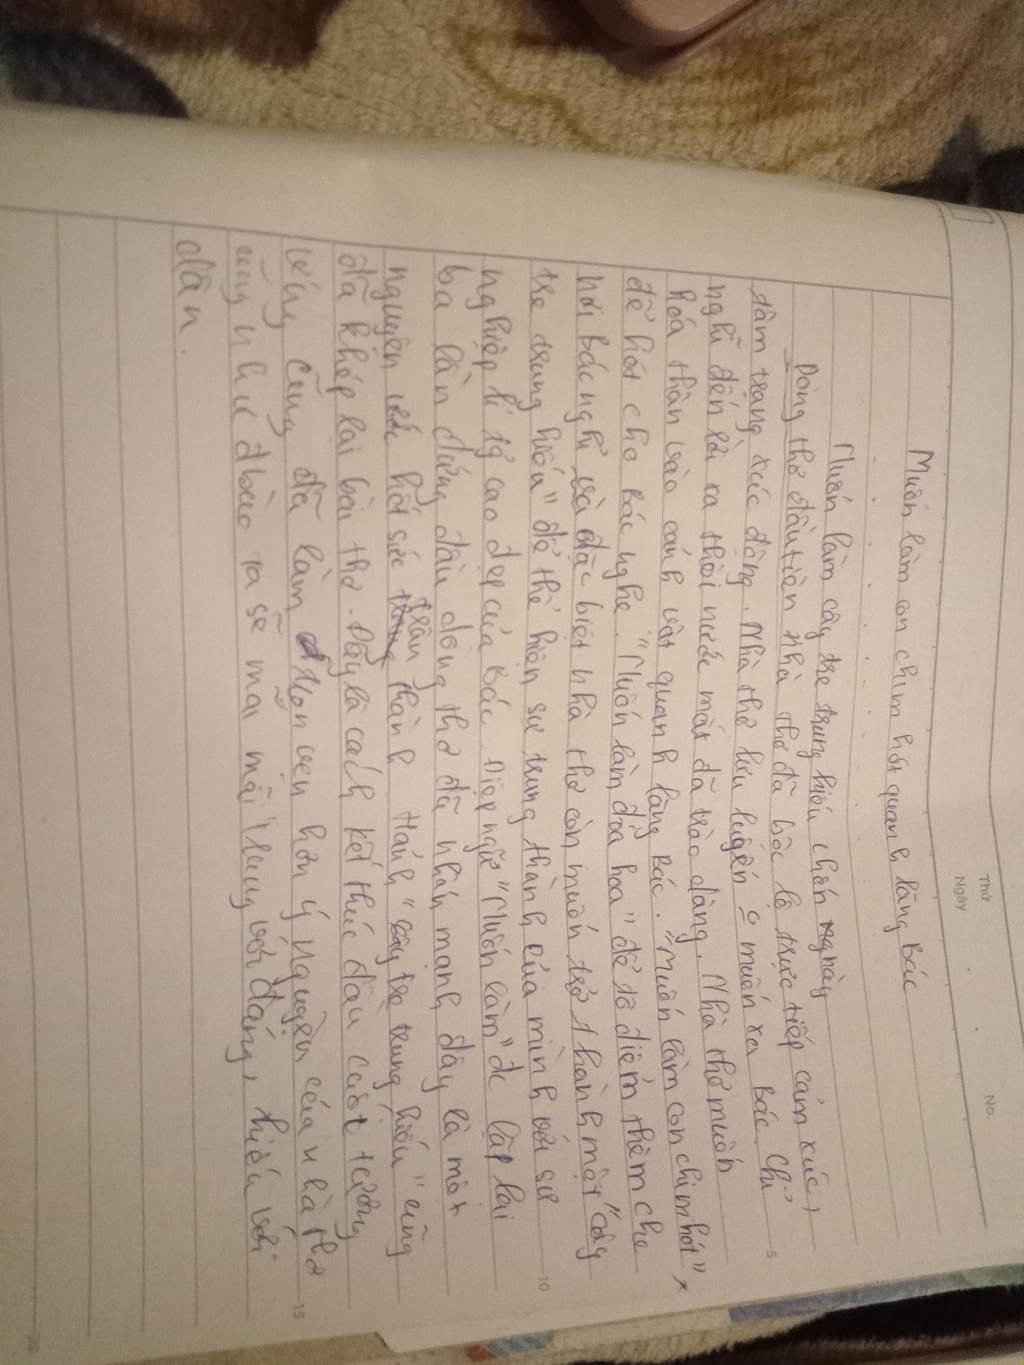 Thứ
Ngày
No.
Muốn làm con chim hót quanh lăng Bác.
. . . . . .
Muốn làm cây tre trung hiếu chốn này
Dòng thơ đầu tiên nhà thơ đã bộc lộ trực tiếp cảm xúc,
tâm trạng xúc động. Nhà thơ lưu luyến muốn xa Bác. Chỉ
nghĩ đến lời xa thôi nước mắt đã trào dâng. Nhà thơ muốn
hóa thân vào cảnh vật quanh lăng Bác. "Muốn làm con chim hót"
để hót cho Bác nghe. "Muốn làm đoá hoa" để tô điểm thêm cho
nơi bác nghỉ và đặc biệt nhà thơ còn muốn trở thành một "cây
tre trung hiếu" để thể hiện sự trung thành của mình với sự
nghiệp lí tg cao đẹp của Bác. Điệp ngữ "Muốn làm" đc lặp lại
ba lần đứng đầu dòng thơ đã nhấn mạnh đây là một
nguyện ước hết sức chân thành. Hình "cây tre trung hiếu" cũng
đã khép lại bài thơ. Đây là cách kết thúc đầu cuối tương
ứng cũng đã làm trọn vẹn hơn ý nguyện của nhà thơ
cũng như đbào ta sẽ mãi mãi "trung với đảng, hiếu với
dân.
5
10
15
20